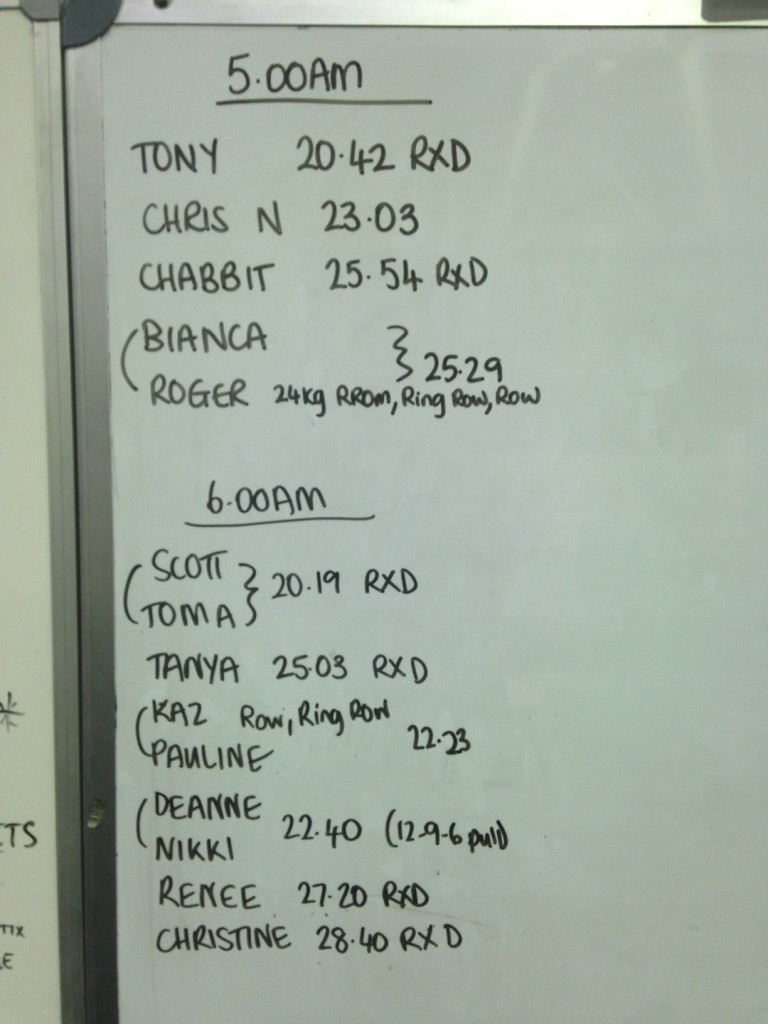 5.00AM
TONY 20.42 RXD
CHRIS N 23.03
CHABBIT 25.54 RXD
BIANCA
25.29
ROGER 24kg RROM, Ring Row, Row
6.00AM
SCOTT
20.19 RXD
TOMA
TANYA 25.03 RXD
KAZ Row, Ring Row
22.23
PAULINE
DEANNE
22.40 (12-9-6 pull)
NIKKI
RENEE 27.20 RXD
CHRISTINE 28.40 RXD
TS
TIX
E